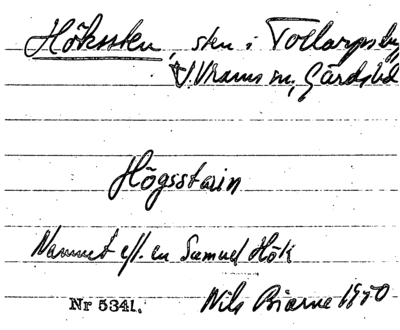 Hökssten, sten i Tollarpsby,
V. Vrams sn, Gärds hd
Högsstain
Namnet eft. en Samuel Hök
Nr 5341. Nils Bjarne 1950